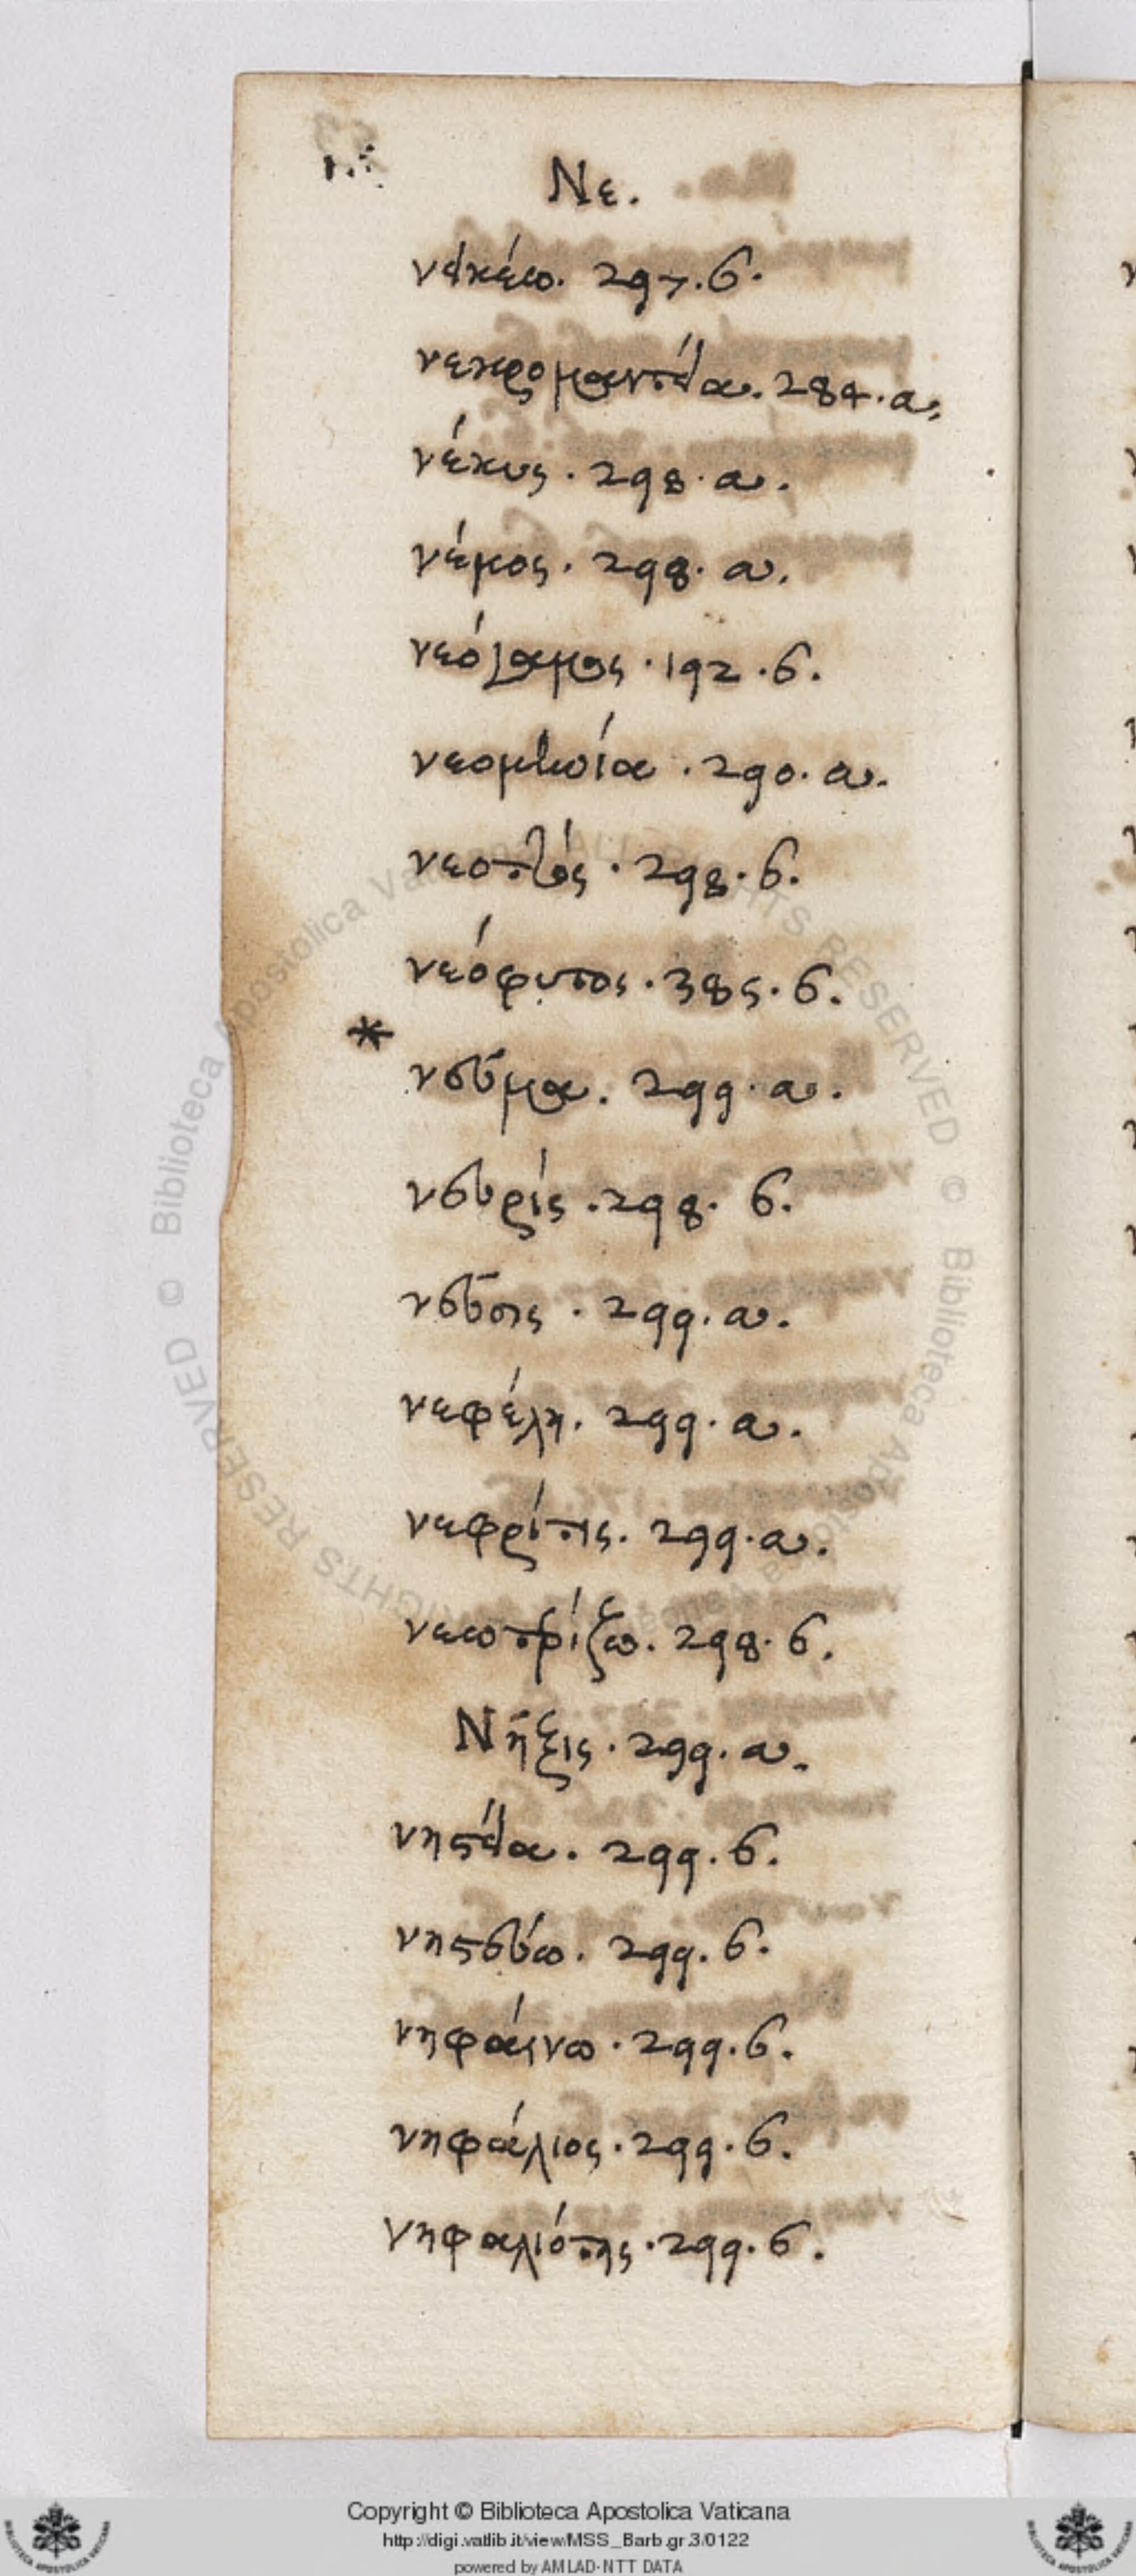 Νε.
νεικέω. 297. β.
νεκρομαντεία. 284. α.
νέκυς. 298. α.
νέμος. 298. α.
νεόγαμος. 192. β.
νεομηνία. 290. α.
νεοττός. 298. β.
νεόφυτος. 385. β.
* νεῦμα. 299. α.
νευρίς. 298. β.
νεῦσις. 299. α.
νεφέλη. 299. α.
νεφρίτις. 299. α.
νεωτρίζω. 298. β.
Νήξις. 299. α.
νηστεία. 299. β.
νηστεύω. 299. β.
νηφαίνω. 299. β.
νηφάλιος. 299. β.
νηφαλιότης. 299. β.
Copyright © Biblioteca Apostolica Vaticana
http://digi.vatlib.it/view/MSS_Barb.gr.3/0122
powered by AMLAD-NTT DATA